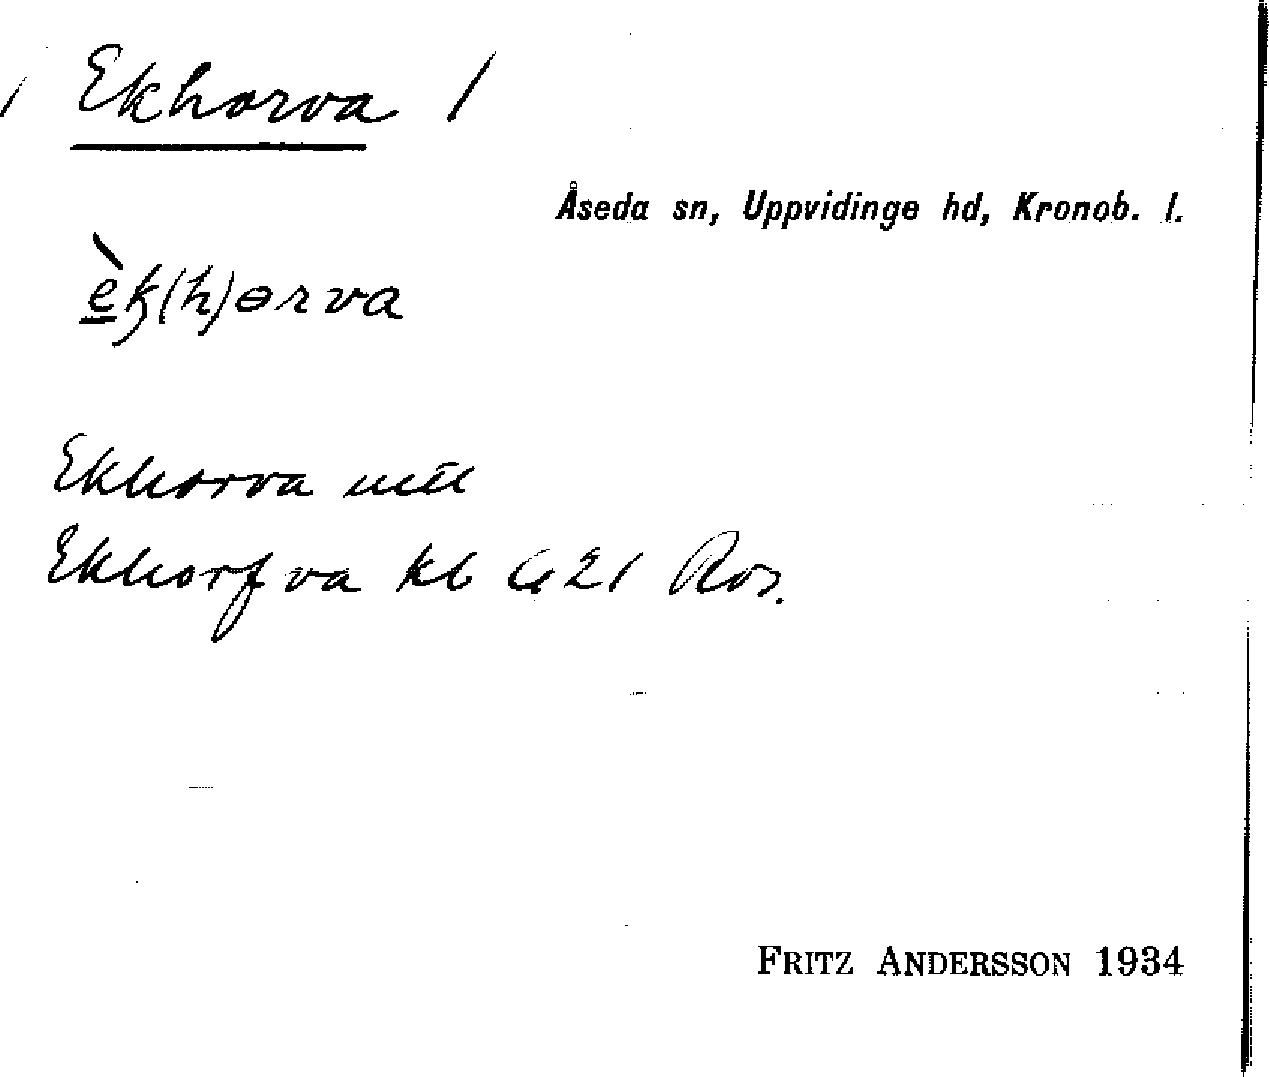 / Ekhorva /
Åseda sn, Uppvidinge hd, Kronob. l.
è̱k(h)ɵrva
Ekhorva
Ekhorfva kb 21 Ros.
FRITZ ANDERSSON 1934